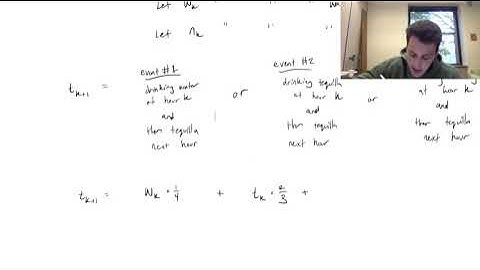 Let Wk " "
Let nk " " "
event #1
event #2
tk+1 =
drinking water at hour k and then tequilla next hour
or
drinking tequilla at hour k and then tequilla next hour
or
at hour k and then tequilla next hour
tk+1 = Wk · 1/4 + tk · 2/3 +